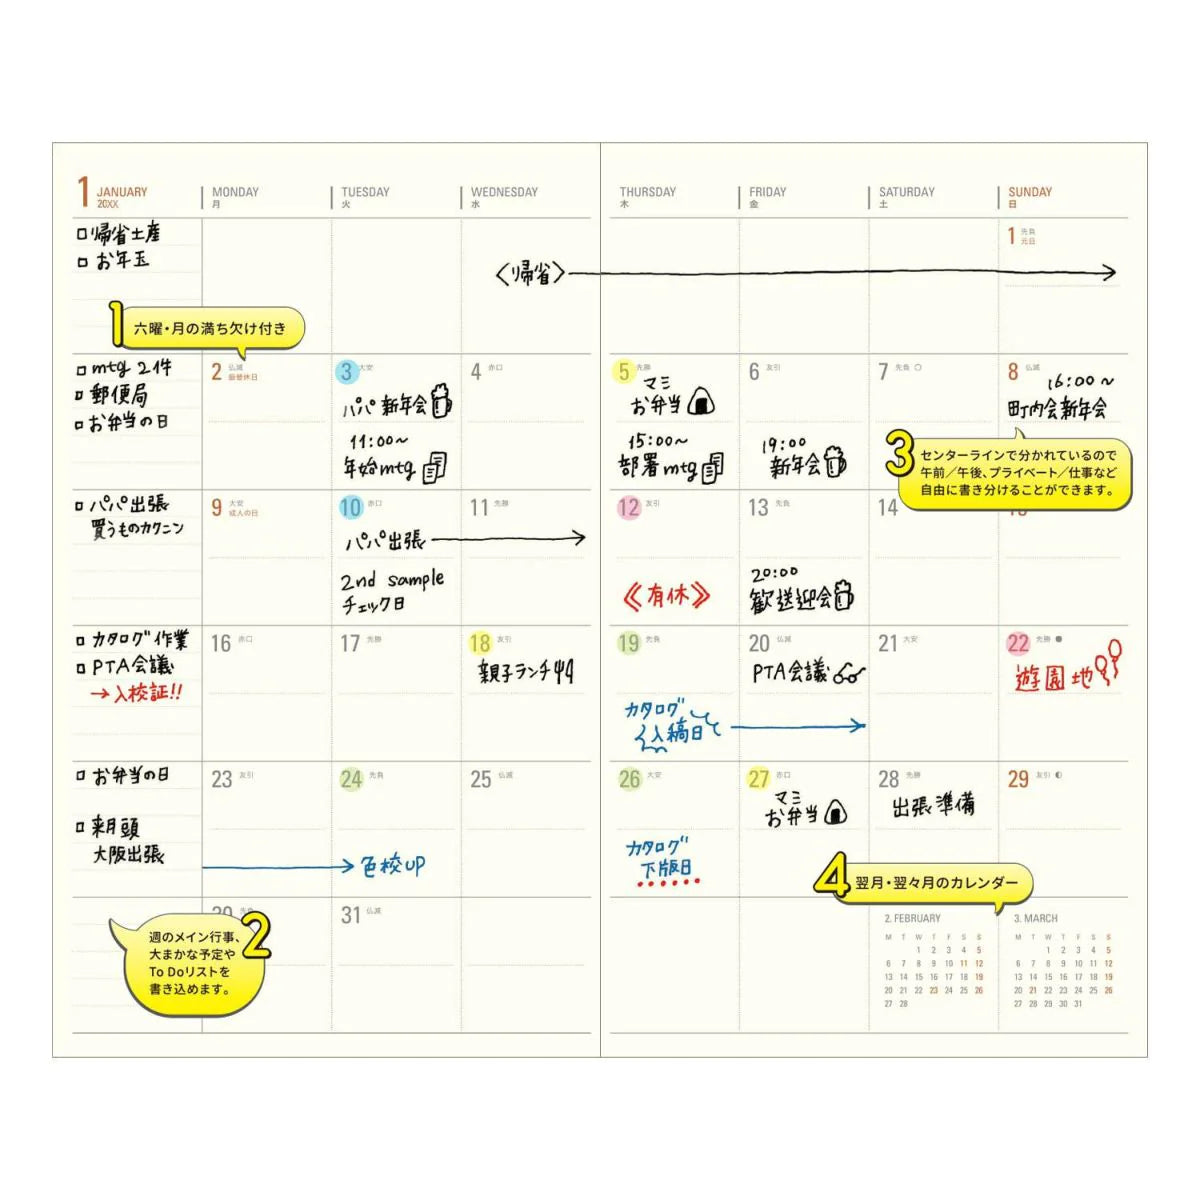 1 JANUARY
20XX
MONDAY
月
TUESDAY
火
WEDNESDAY
水
THURSDAY
木
FRIDAY
金
SATURDAY
土
SUNDAY
日
帰省土産
お年玉
〈帰省〉
1 先負
元日
1 六曜・月の満ち欠け付き
mtg 2件
郵便局
お弁当の日
2 仏滅
振替休日
3 大安
パパ新年会
11:00~
年始mtg
4 赤口
5 先勝
マミ
お弁当
15:00~
部署mtg
6 友引
19:00
新年会
7 先負
8 仏滅
16:00~
町内会新年会
3 センターラインで分かれているので
午前/午後、プライベート/仕事など
自由に書き分けることができます。
パパ出張
買うものカクニン
9 大安
成人の日
10 赤口
パパ出張
2nd sample
チェック日
11 先勝
12 友引
《有休》
13 先負
20:00
歓送迎会
14
カタログ作業
PTA会議
→入校証!!
16 赤口
17 先勝
18 友引
親子ランチ
19 先負
カタログ
入稿日
20 仏滅
PTA会議
21 大安
22 先勝
遊園地
お弁当の日
来月頭
大阪出張
23 友引
24 先負
色校UP
25 仏滅
26 大安
カタログ
下版日
27 赤口
マミ
お弁当
28 先勝
出張準備
29 友引
4 翌月・翌々月のカレンダー
2 週のメイン行事、
大まかな予定や
To Doリストを
書き込めます。
31 仏滅
2. FEBRUARY
M T W T F S S
1 2 3 4 5
6 7 8 9 10 11 12
13 14 15 16 17 18 19
20 21 22 23 24 25 26
27 28
3. MARCH
M T W T F S S
1 2 3 4 5
6 7 8 9 10 11 12
13 14 15 16 17 18 19
20 21 22 23 24 25 26
27 28 29 30 31